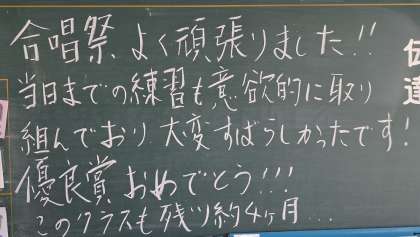 合唱祭、よく頑張りました!!
当日までの練習も意欲的に取り
組んでおり、大変すばらしかったです!
優良賞おめでとう!!!
このクラスも残り約4ヶ月...
伝達